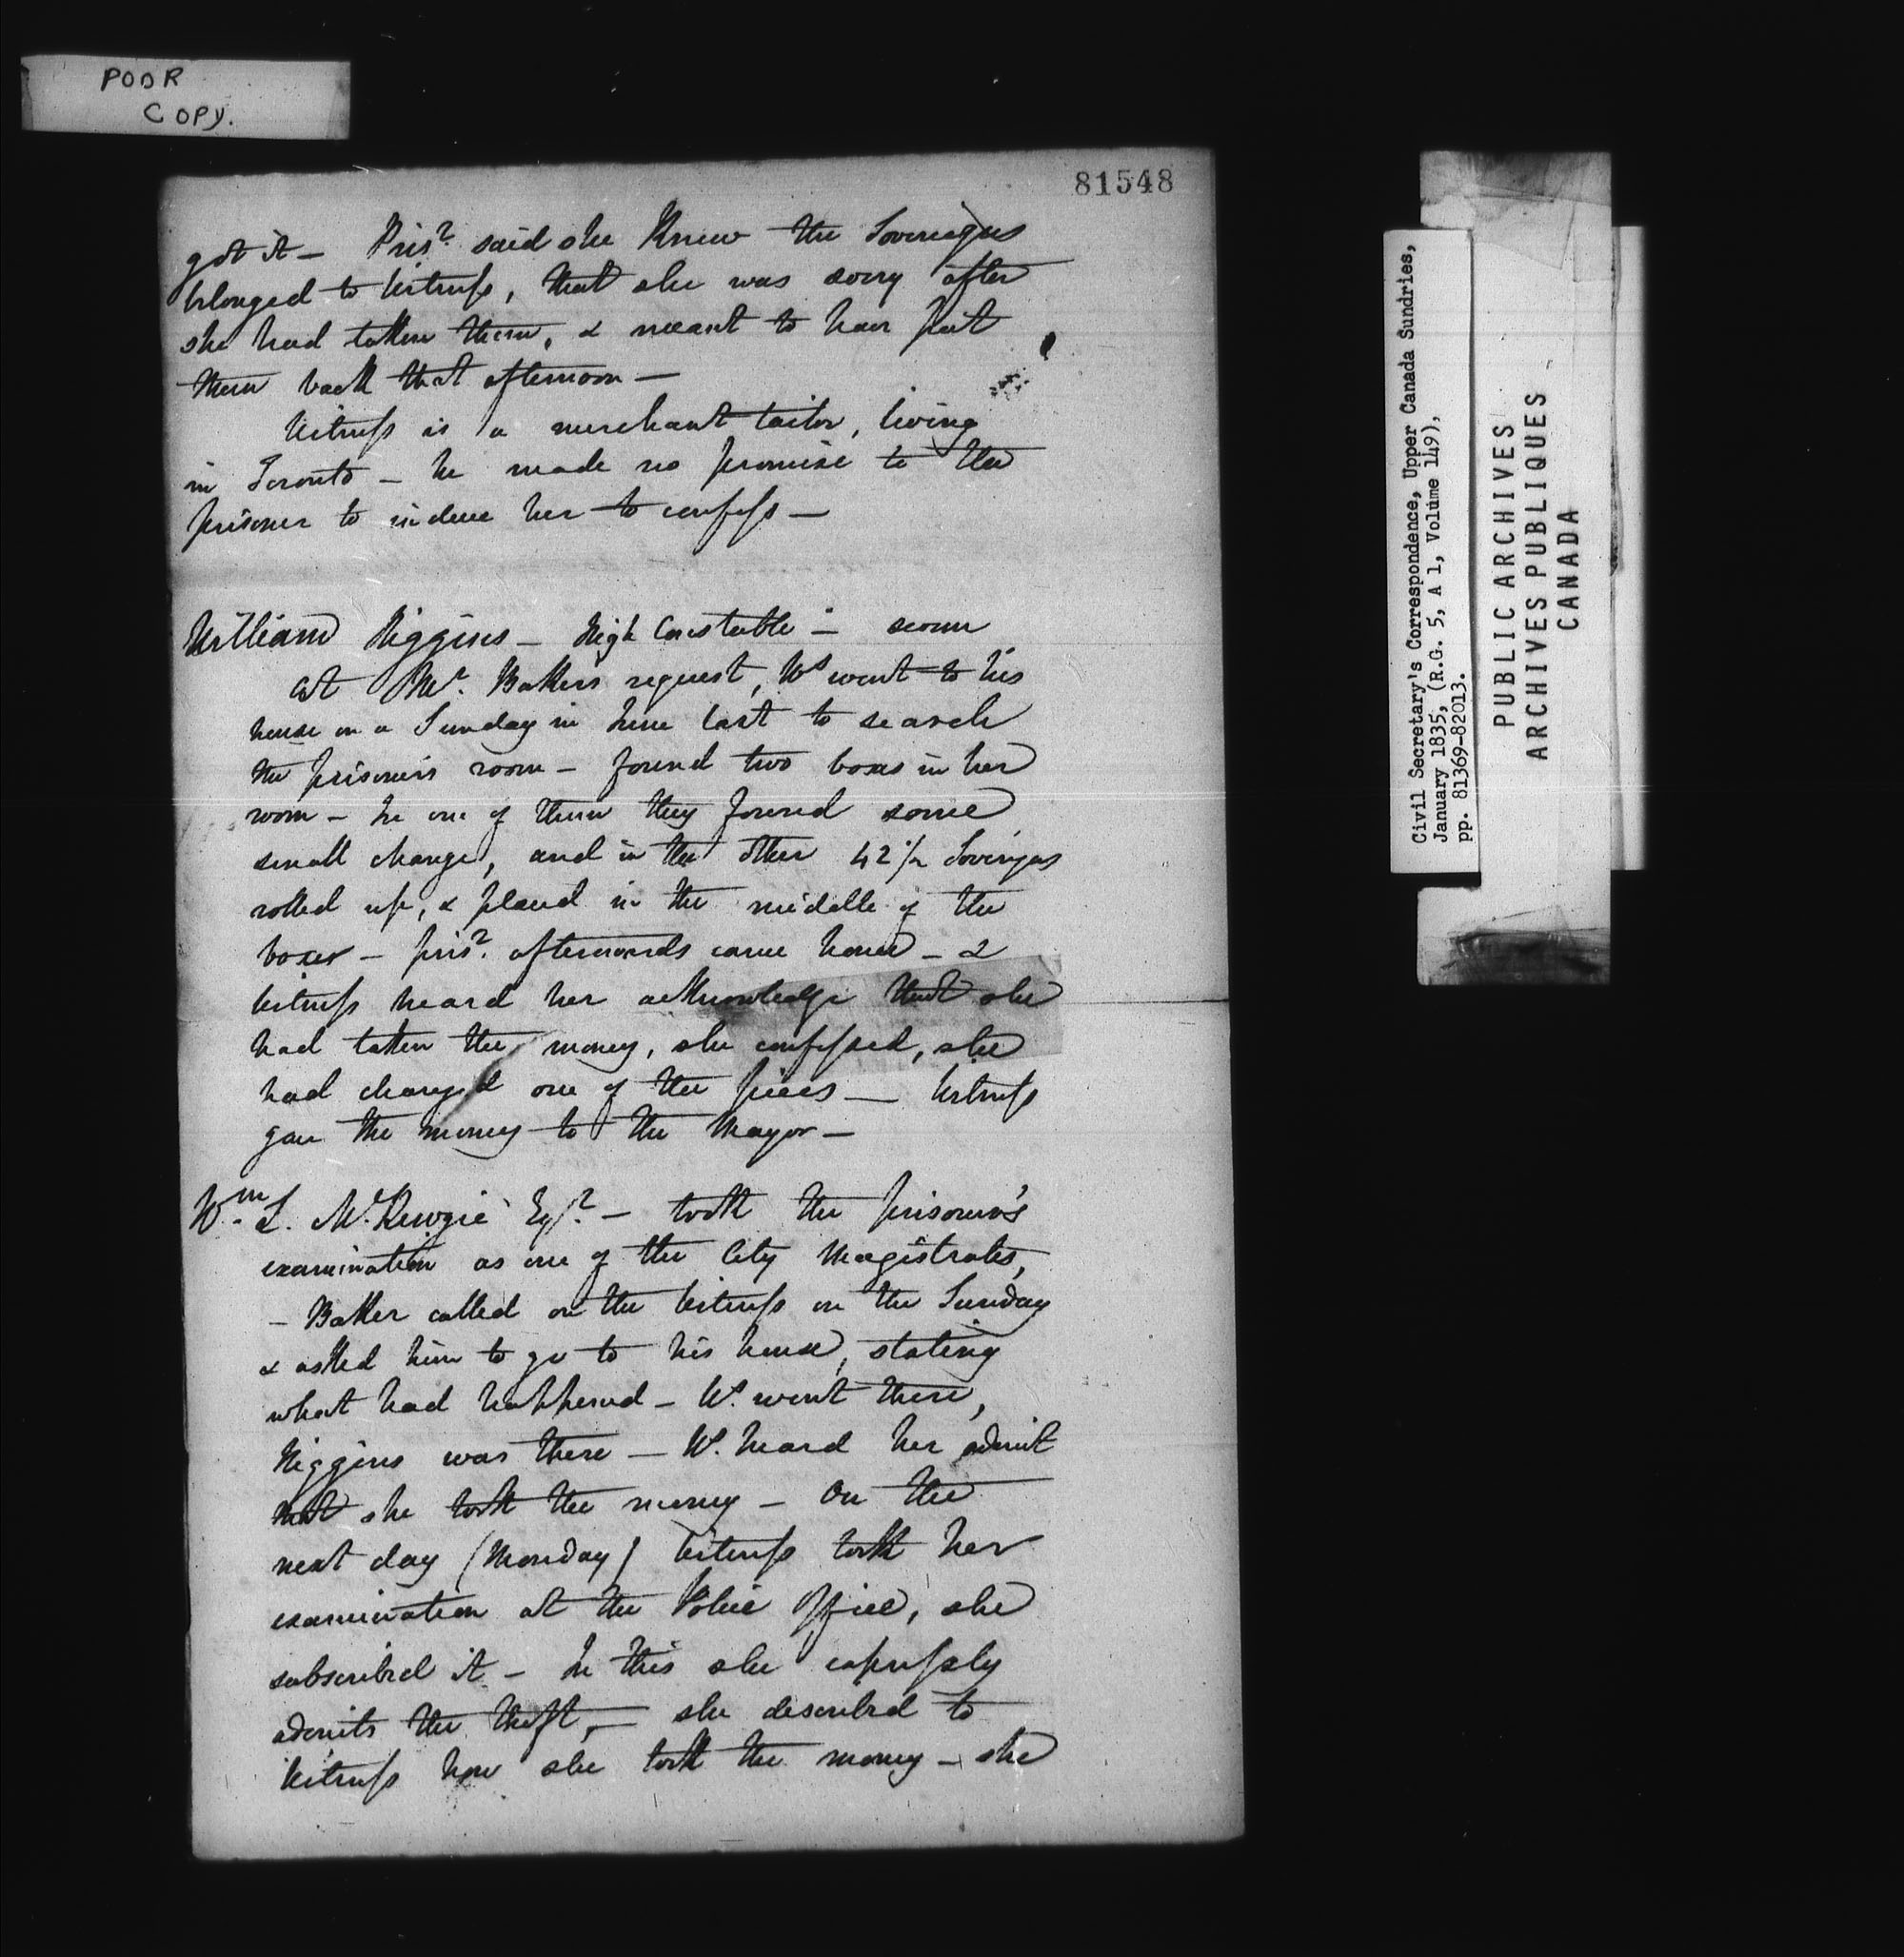 POOR
COPY.
81548
got it — Prisr. said she knew the Sovereigns
belonged to Witness, that she was sorry after
she had taken them, & meant to have put
them back that afternoon —
Witness is a merchant tailor, living
in Toronto — he made no promise to the
prisoner to induce her to confess —
William Higgins — High Constable — sworn
At Mr. Bakers request, Ws went to his
house on a Sunday in June last to search
the prisoners room — found two boxes in her
room — In one of them they found some
small change, and in the other 42 1/2 Sovereigns
rolled up, & placed in the middle of the
boxes — prisr. afterwards came home — &
Witness heard her acknowledge that she
had taken the money, she confessed, she
had changed one of the pieces — Witness
gave the money to the Mayor —
Wm. L. McKenzie Esqr. — took the prisoner's
examination as one of the City Magistrates,
— Baker called on the Witness on the Sunday
& asked him to go to his house, stating
what had happened — Ws. went there,
Higgins was there — Ws. heard her admit
that she took the money — On the
next day (Monday) Witness took her
examination at the Police Office, she
subscribed it — In this she expressly
admits the theft, — she described to
Witness how she took the money — she
Civil Secretary's Correspondence, Upper Canada Sundries,
January 1835, (R.G. 5, A 1, Volume 149),
pp. 81369-82013.
PUBLIC ARCHIVES
ARCHIVES PUBLIQUES
CANADA